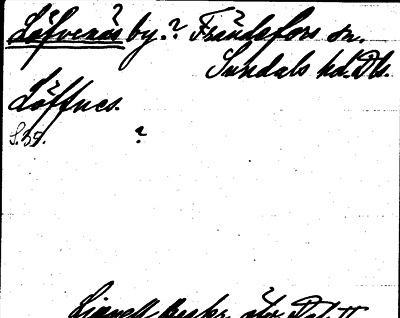 Löfvenäs by.? Frändefors sn.
Sundals hd. Dls.
Löffnes.
S. 39. ?
Lignell Beskr. öfv. Dal II